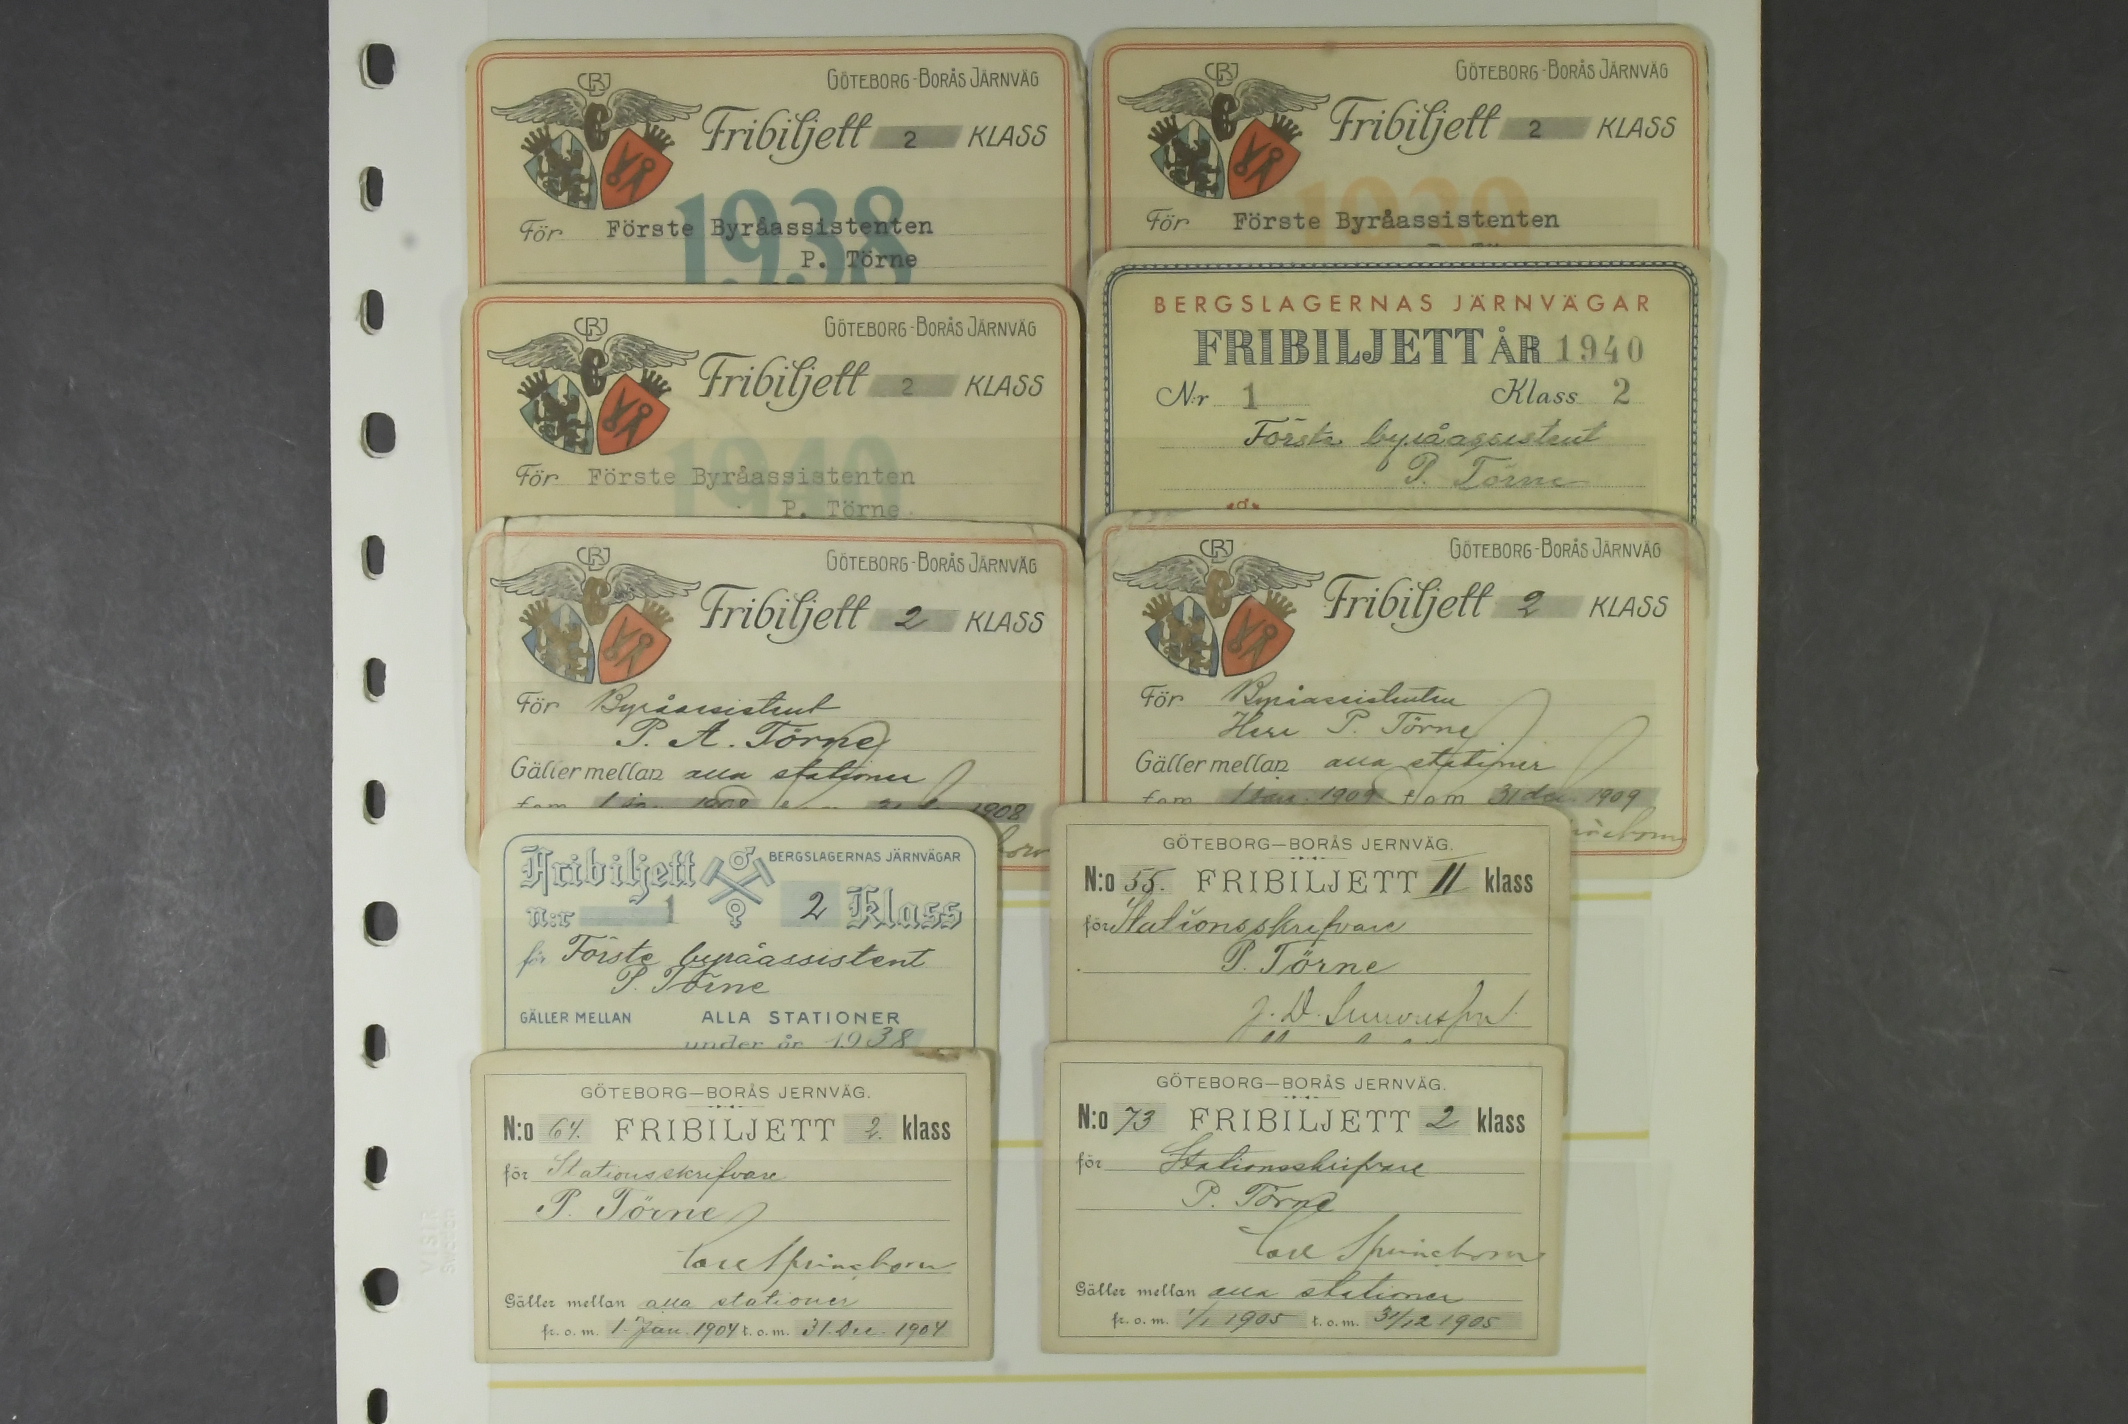 GÖTEBORG-BORÅS JÄRNVÄG
Fribiljett 2 KLASS
1938
För Förste Byråassistenten
P. Törne
GÖTEBORG-BORÅS JÄRNVÄG
Fribiljett 2 KLASS
1939
För Förste Byråassistenten
GÖTEBORG-BORÅS JÄRNVÄG
Fribiljett 2 KLASS
1940
För Förste Byråassistenten
P. Törne
BERGSLAGERNAS JÄRNVÄGAR
FRIBILJETT ÅR 1940
N:r 1 Klass 2
Förste byråassistent
P. Törne
GÖTEBORG-BORÅS JÄRNVÄG
Fribiljett 2 KLASS
För Byråassistent
P. A. Törne
Gäller mellan alla stationer
1908 1908
GÖTEBORG-BORÅS JÄRNVÄG
Fribiljett 2 KLASS
För Byråassistenten
Herr P. Törne
Gäller mellan alla stationer
fom 1 jan. 1909 tom 31 dec. 1909
Fribiljett BERGSLAGERNAS JÄRNVÄGAR
n:r 1 2 Klass
för Förste byråassistent
P. Törne
GÄLLER MELLAN ALLA STATIONER
under år 1938
GÖTEBORG—BORÅS JERNVÄG.
N:o 55. FRIBILJETT II klass
för Stationsskrifvare
P. Törne
GÖTEBORG—BORÅS JERNVÄG.
N:o 64. FRIBILJETT 2. klass
för Stationsskrifvare
P. Törne
Carl Springborn
Gäller mellan alla stationer
fr. o. m. 1. Jan. 1904 t. o. m. 31. Dec. 1904
GÖTEBORG—BORÅS JERNVÄG.
N:o 73 FRIBILJETT 2 klass
för Stationsskrifvare
P. Törne
Carl Springborn
Gäller mellan alla stationer
fr. o. m. 1/1 1905 t. o. m. 31/12 1905
VISIR
Sweden